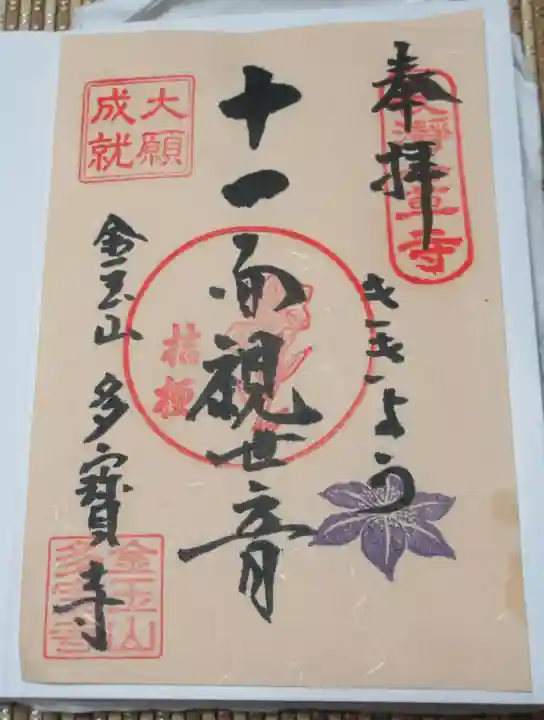 奉拝
ききょう
十一面観世音
桔梗
大願
成就
金玉山 多寳寺
金玉山
多宝寺